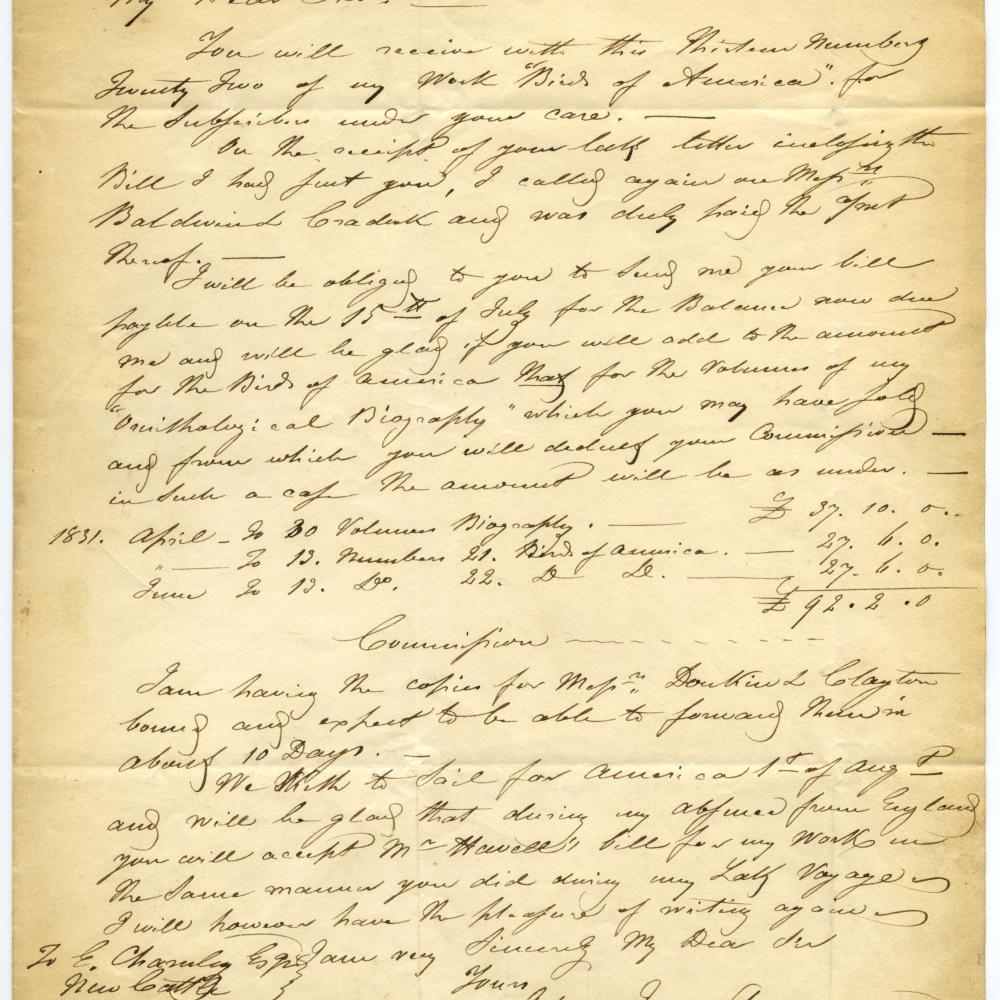 My Dear Sir. —
You will receive with this thirteen Numbers
Twenty Two of my Work "Birds of America". for
the Subscribers under your care. —
On the receipt of your last letter inclosing the
Bill I had sent you, I called again on Mess.rs
Baldwin & Cradock and was duly paid the amt
thereof. —
I will be obliged to you to send me your bill
payble on the 15th of July for the Balance now due
me and will be glad if you will add to the amount
for the Birds of America that for the Volumes of my
"Ornithological Biography" which you may have sold
and from which you will deduct your Commission —
in such a case the amount will be as under. —
1831. April – To 30 Volumes Biography. — £ 37. 10. 0..
" — To 13. Numbers 21. Birds of America. — 27. 6. 0.
June To 13. Do. 22. D— D. — 27. 6. 0.
£ 92. 2. 0
Commission
I am having the copies for Messrs. Donkin & Clayton
bound and expect to be able to forward them in
about 10 Days. —
We Wish to Sail for America 1st of Augt
and will be glad that during my absence from England
you will accept Mr Havell's bill for my Work in
the same manner you did during my Last Voyage
I will however have the pleasure of writing again
To E. Charnley Esqr I am very Sincerely My Dear Sir
New Castle Yours